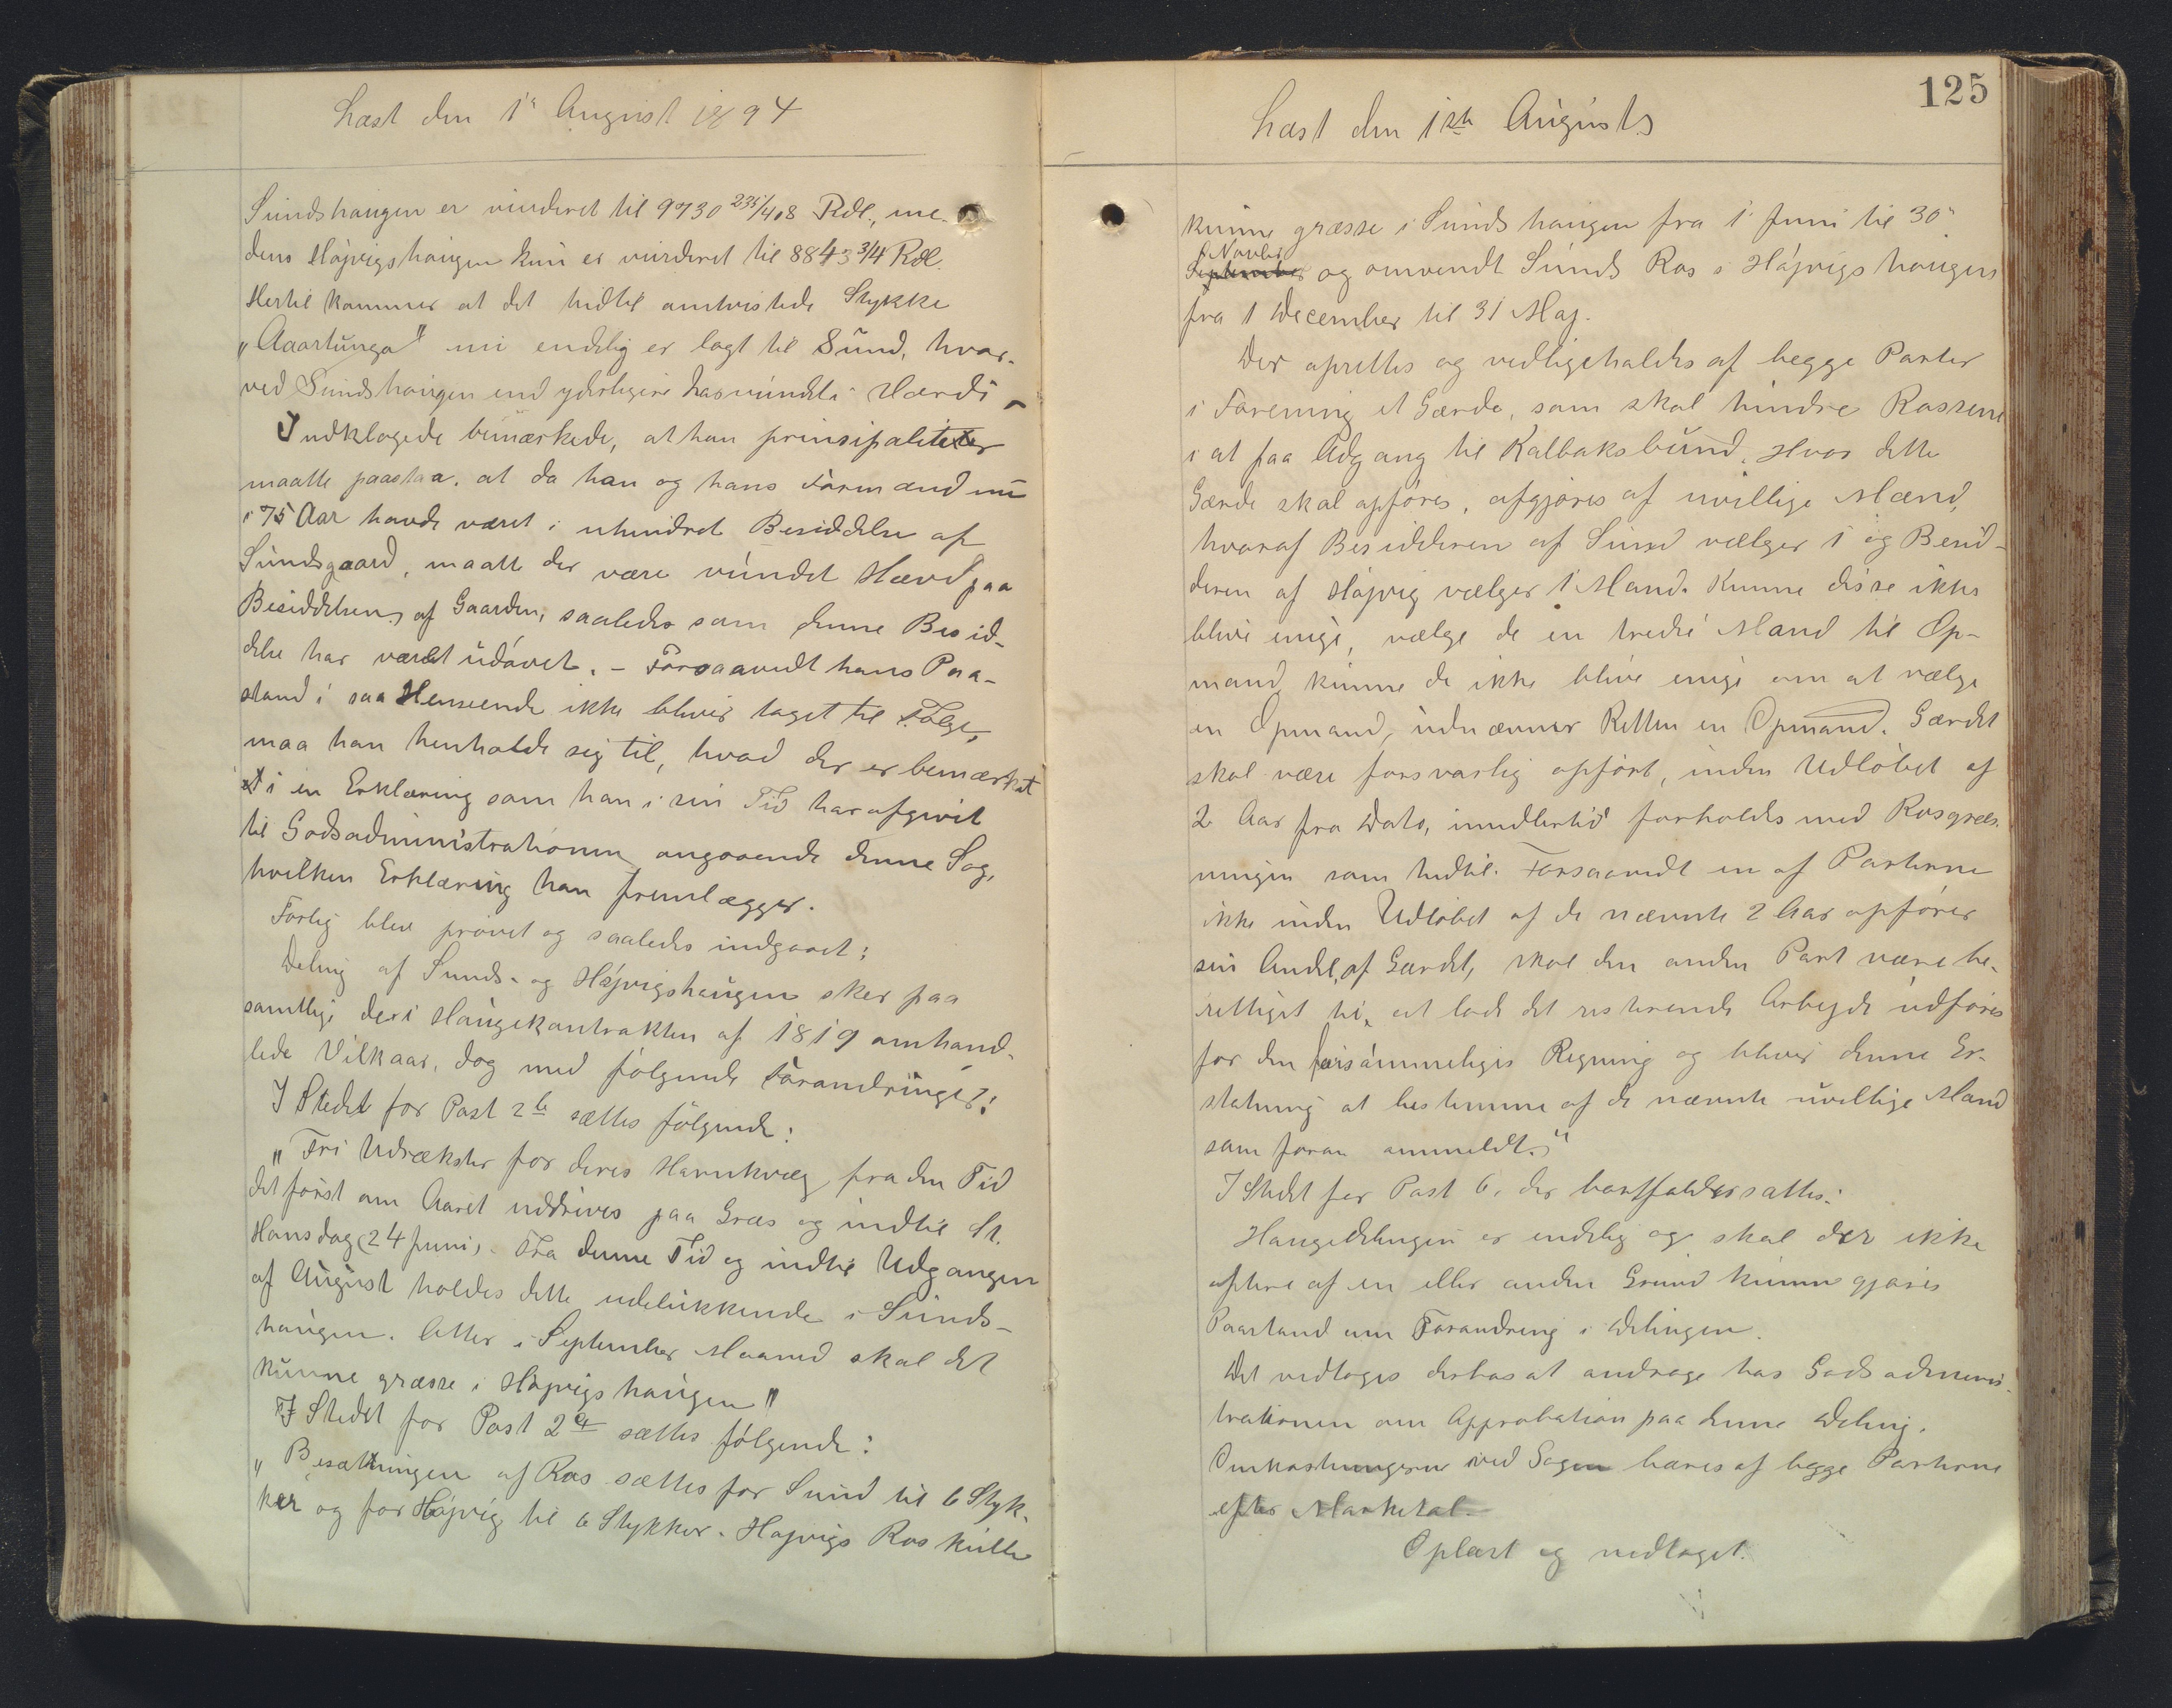 Læst den 1' August 1894
Sundshaugen er vurderet til 9730 235/408 Rdl., me-
dens Højvigshaugen kun er vurderet til 8843 3/4 Rdl.
Hertil kommer at det hidtil omtvistede Stykke
"Aaartunga" nu endelig er lagt til Sund, hvor-
ved Sundshaugen end yderligere har vundet i Værdi
Indklagede bemærkede, at han prinsipaliter
maatte paastaa, at da han og hans Formænd nu
i 75 Aar havde været i uhindret Besiddelse af
Sundsgaard, maatte der være vundet Hævd paa
Besiddelsen af Gaarden, saaledes som denne Besid-
delse har været udøvet. - Forsaavidt hans Paa-
stand i saa Henseende ikke bliver taget til Følge,
maa han henholde sig til, hvad der er bemærket
i en Erklæring som han i sin Tid har afgivet
til Godsadministrationen angaaende denne Sag,
hvilken Erklæring han fremlægger.
Forlig blev prøvet og saaledes indgaaet:
Deling af Sunds- og Højvigshaugen sker paa
samtlige de i Haugekontrakten af 1819 omhand-
lede Vilkaar, dog med følgende Forandringer:
I Stedet for Post 2 b sættes følgende:
"Fri Udrækster for deres Hornkvæg fra den Tid
det først om Aaret uddrives paa Græs og indtil St.
Hansdag (24 Juni). Fra denne Tid og indtil Udgangen
af August holdes dette udelukkende i Sunds-
haugen. Atter i September Maaned skal det
kunne græsse i Højvigshaugen"
I Stedet for Post 2 a sættes følgende:
"Besætningen af Ros sættes for Sund til 6 Styk-
ker og for Højvig til 6 Stykker. Højvigs Ros skulle
125
Læst den 1ste August
kunne græsse i Sundshaugen fra 1' Juni til 30'
Novbr
September og omvendt Sunds Ros i Højvigshaugen
fra 1 December til 31 Maj.
Der oprettes og vedligeholdes af begge Parter
i Forening et Gærde, som skal hindre Rossene
i at faa Adgang til Kalbaksbund. Hvor dette
Gærde skal opføres, afgjøres af uvillige Mænd,
hvoraf Besidderen af Sund vælger 1 og Besid-
deren af Højvig vælger 1 Mand. Kunne disse ikke
blive enige, vælge de en tredie Mand til Op-
mand, kunne de ikke blive enige om at vælge
en Opmand, udnævner Retten en Opmand. Gærdet
skal være forsvarlig opført, inden Udløbet af
2 Aar fra Dato, imidlertid forholdes med Rosgræs-
ningen som hidtil. Forsaavidt en af Parterne
ikke inden Udløbet af de nævnte 2 Aar opfører
sin Andel af Gærdet, skal den anden Part være be-
rettiget til, at lade det resterende Arbejde udføres
for den forsømmeliges Regning og bliver denne Er-
statning at bestemme af de nævnte uvillige Mænd
som foran ommeldt."
I Stedet for Post 6, der bortfalder sættes:
Haugedelingen er endelig og skal der ikke
oftere af en eller anden Grund kunne gjøres
Paastand om Forandring i Delingen.
Det vedtoges derhos at andrage hos Godsadminis-
trationen om Approbation paa denne Deling.
Omkostningerne ved Sagen bæres af begge Parterne
efter Marketal.
Oplæst og vedtaget.